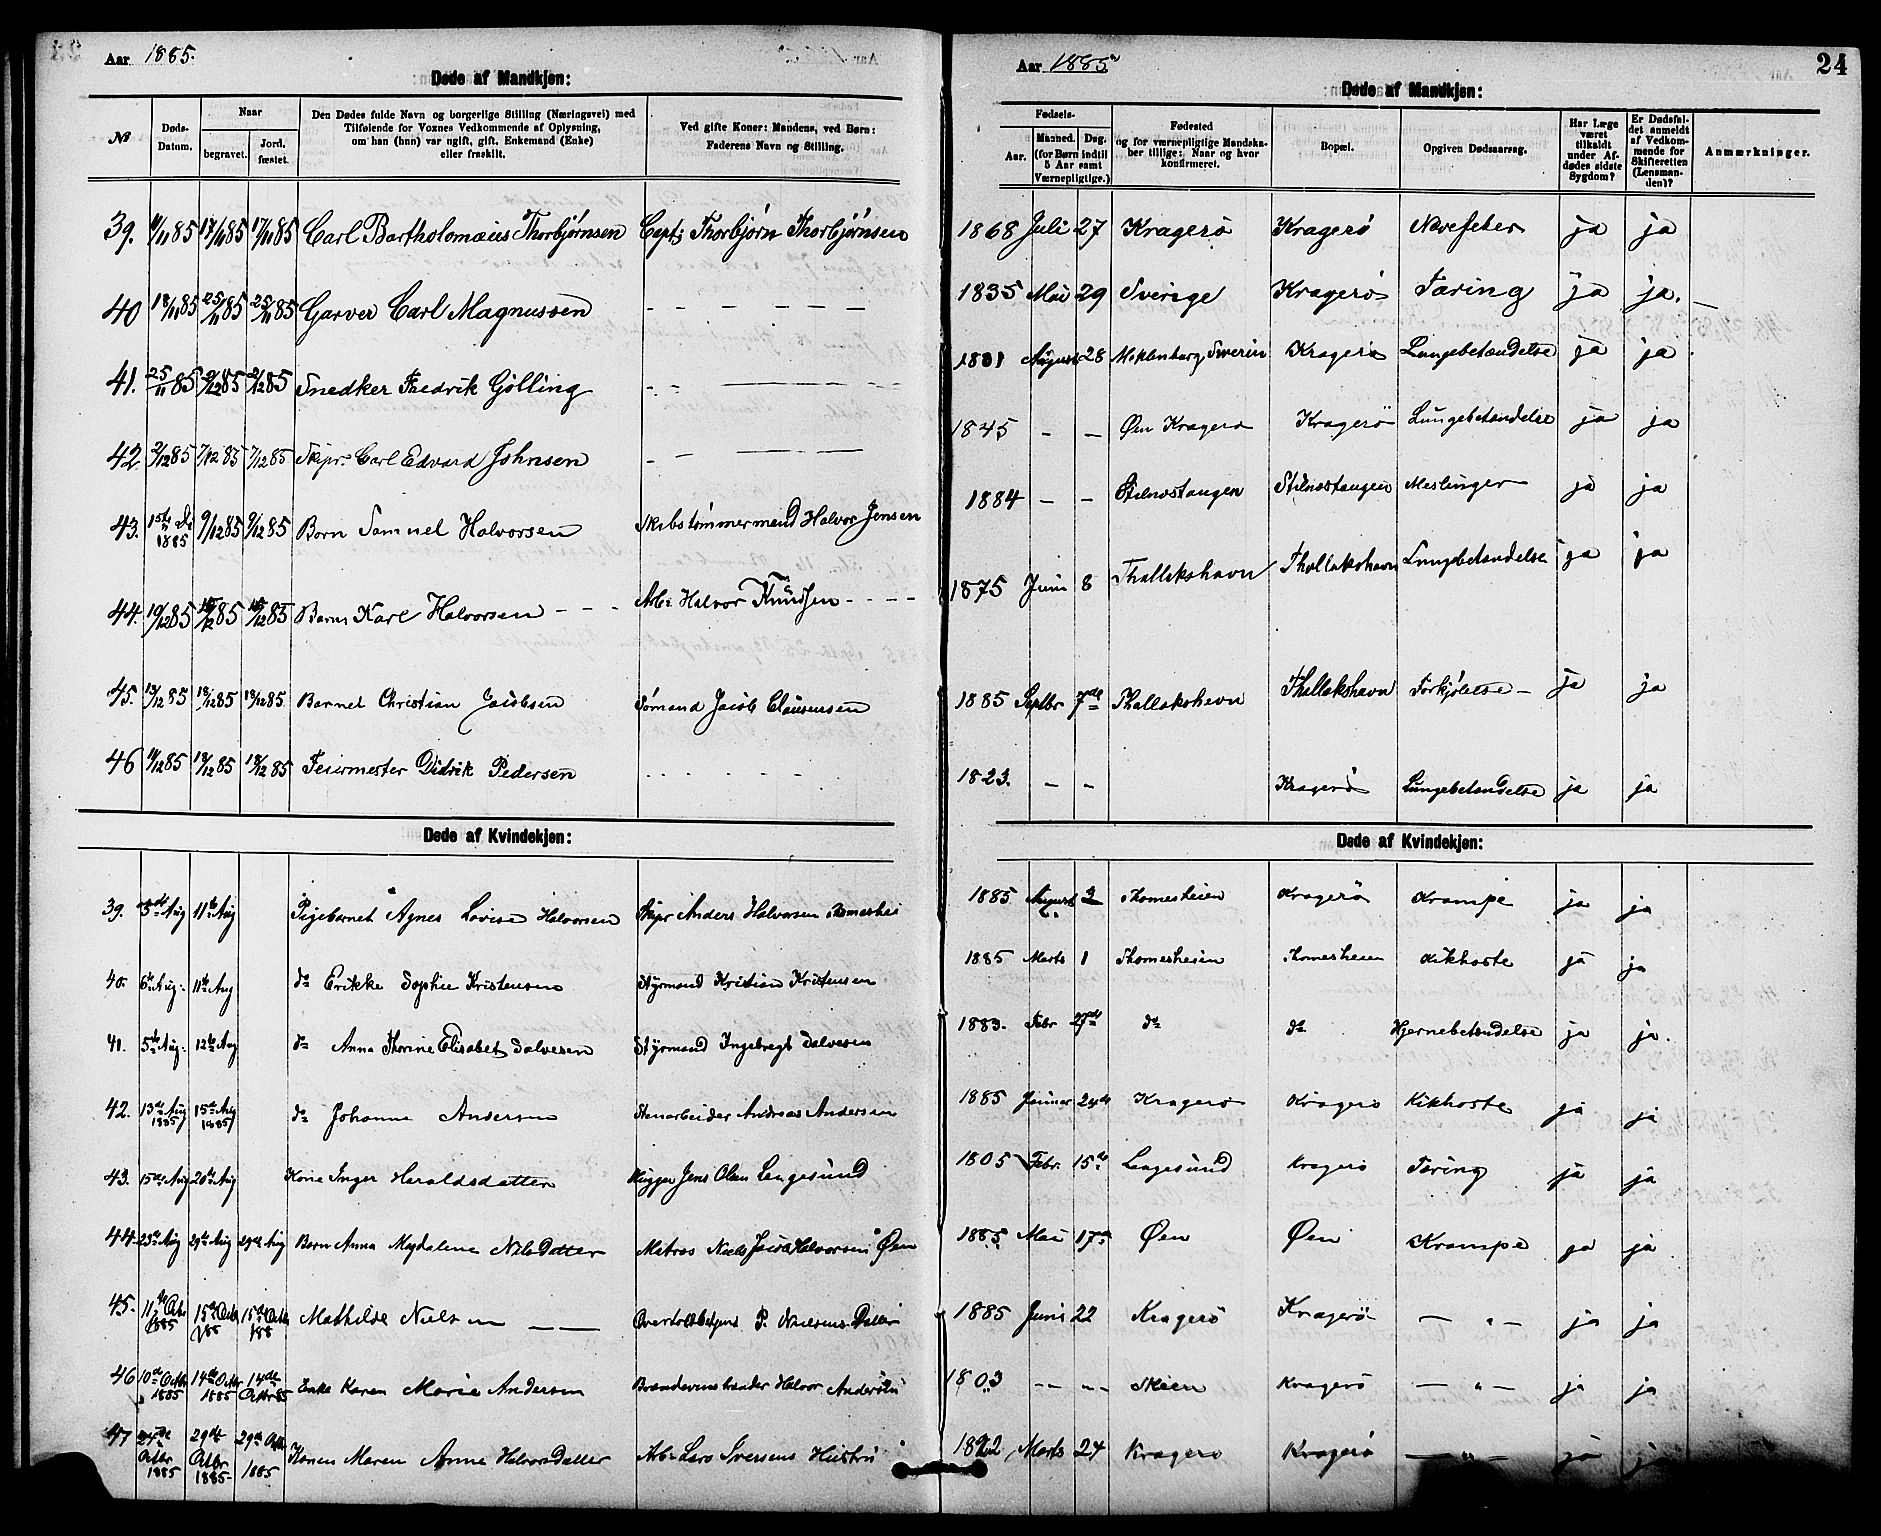 Aar 1885.
Døde af Mandkjøn:
№
Døds-Datum.
Naar
begravet.
Jord. fæstet.
Den Dødes fulde Navn og borgerlige Stilling (Næringsvei) med
Tilføiende for Voxnes Vedkommende af Oplysning,
om han (hun) var ugift, gift, Enkemand (Enke)
eller fraskilt.
Ved gifte Koner: Mandens, ved Børn:
Faderens Navn og Stilling.
39. 11/11 85 17/11 85 17/11 85 Carl Bartholomæus Thorbjörnsen Capt: Thorbjörn Thorbjörnsen
40 18/11 85 25/11 85 25/11 85 Garver Carl Magnussen — — — — —
41. 25/11 85 2/12 85 2/12 85 Snedker Fredrik Gölling
42. 2/12 85 7/12 85 7/12 85 Skipr: Carl Edvard Johnsen
43. 1ste D. 1885 9/12 85 9/12 85 Barn Samuel Halvorsen Skibstömmermand Halvor Jensen
44. 10/12 85 15/12 85 15/12 85 Barn Karl Halvorsen Arb: Halvor Knudsen
45. 13/12 85 18/12 85 18/12 85 Barnet Christian Jacobsen Sömand Jacob Clausensen
46 11/12 85 18/12 85 18/12 85 Feiermester Didrik Pedersen
Døde af Kvindekjøn:
39. 3de Aug 11te Aug Pigebarnet Agnes Lovise Halvorsen Skipr Anders Halvorsen
40. 6te Aug. 11te Aug do Erikke Sophie Kristensen Styrmand Kristian Kristensen
41. 5te Aug. 12te Aug do Anna Thorine Elisabet Salvesen Styrmand Ingebregt Salvesen
42. 13de Aug 1885 15de Aug 1885 do Johanne Andersen Stenarbeider Andreas Andersen
43. 15de Aug 20de Aug Kone Inger Haraldsdatter Rigger Jens Olsen Langesund
44. 23de Aug 29de Aug 29de Aug Barn Anna Magdalene NilsDatter Matros Niels Jacob Halvorsen Øen
45. 11te Octr 1885 15de Octr 1885 15de Octr 188 Mathilde Nielsen — — Overtoldbetjent P. Nielsens Datter
46 10de Octbr 1885 14de Octbr 1885 14de Octbr 85 Enke Karen Marie Andersen Brændevinsbrænder Halvor Andersen
47 24de Octbr 1885 29de Octbr 1885 29de Octbr 1885 Konen Maren Anne HalvorsDatter Arb: Lars Iversens Hustru
Aar 1885
24
Døde af Mandkjøn:
Fødsels-
Aar.
Maaned. Dag.
(for Børn indtil
5 Aar samt
Værnepligtige.)
Fødested
og for værnepligtige Mandskaber tillige: Naar og hvor
konfirmeret.
Bopæl.
Opgiven Dødsaarsag.
Har Læge
været
tilkaldt
under Afdødes sidste
Sygdom?
Er Dødsfaldet anmeldt
af Vedkommende for
Skifteretten
(Lensmanden)?
Anmærkninger.
1868 Juli 27 Kragerö Kragerö Nervefeber ja ja
1835 Mai 29 Sverige Kragerö Tæring ja ja.
August 28 Meklenborg Swerin Kragerö Lungebetændelse ja ja
1845 — — Øen Kragerø Kragerö Lungebetændelse ja ja
1884 — — Stilnestangen Stilnestangen Meslinger ja ja
1875 Juni 8 Thallakshavn Thallakshavn Lungebetændelse ja ja
1885 Septbr 7de Thallakshavn Thallakshavn Forkjölelse — ja ja
1823. — — Kragerö Lungebetændelse ja ja
Døde af Kvindekjøn:
1885 August 3 Thomesheien Kragerö Krampe ja ja
1885 Marts 1 Thomesheien Thomesheien Kikhoste ja ja
1883. Febr 27de do do Hjernebetændelse ja ja.
1885 Januar 24de Kragerö Kragerö Kikhoste ja ja
1805 Febr. 15de Langesund Kragerö Tæring ja ja
1885 Mai 17de Øen Øen Krampe ja ja
1885 Juni 22 Kragerö Kragerö — " — ja ja
1803 — — Skien Kragerö — " — ja ja
Marts 24 Kragerö Kragerö — " — ja ja